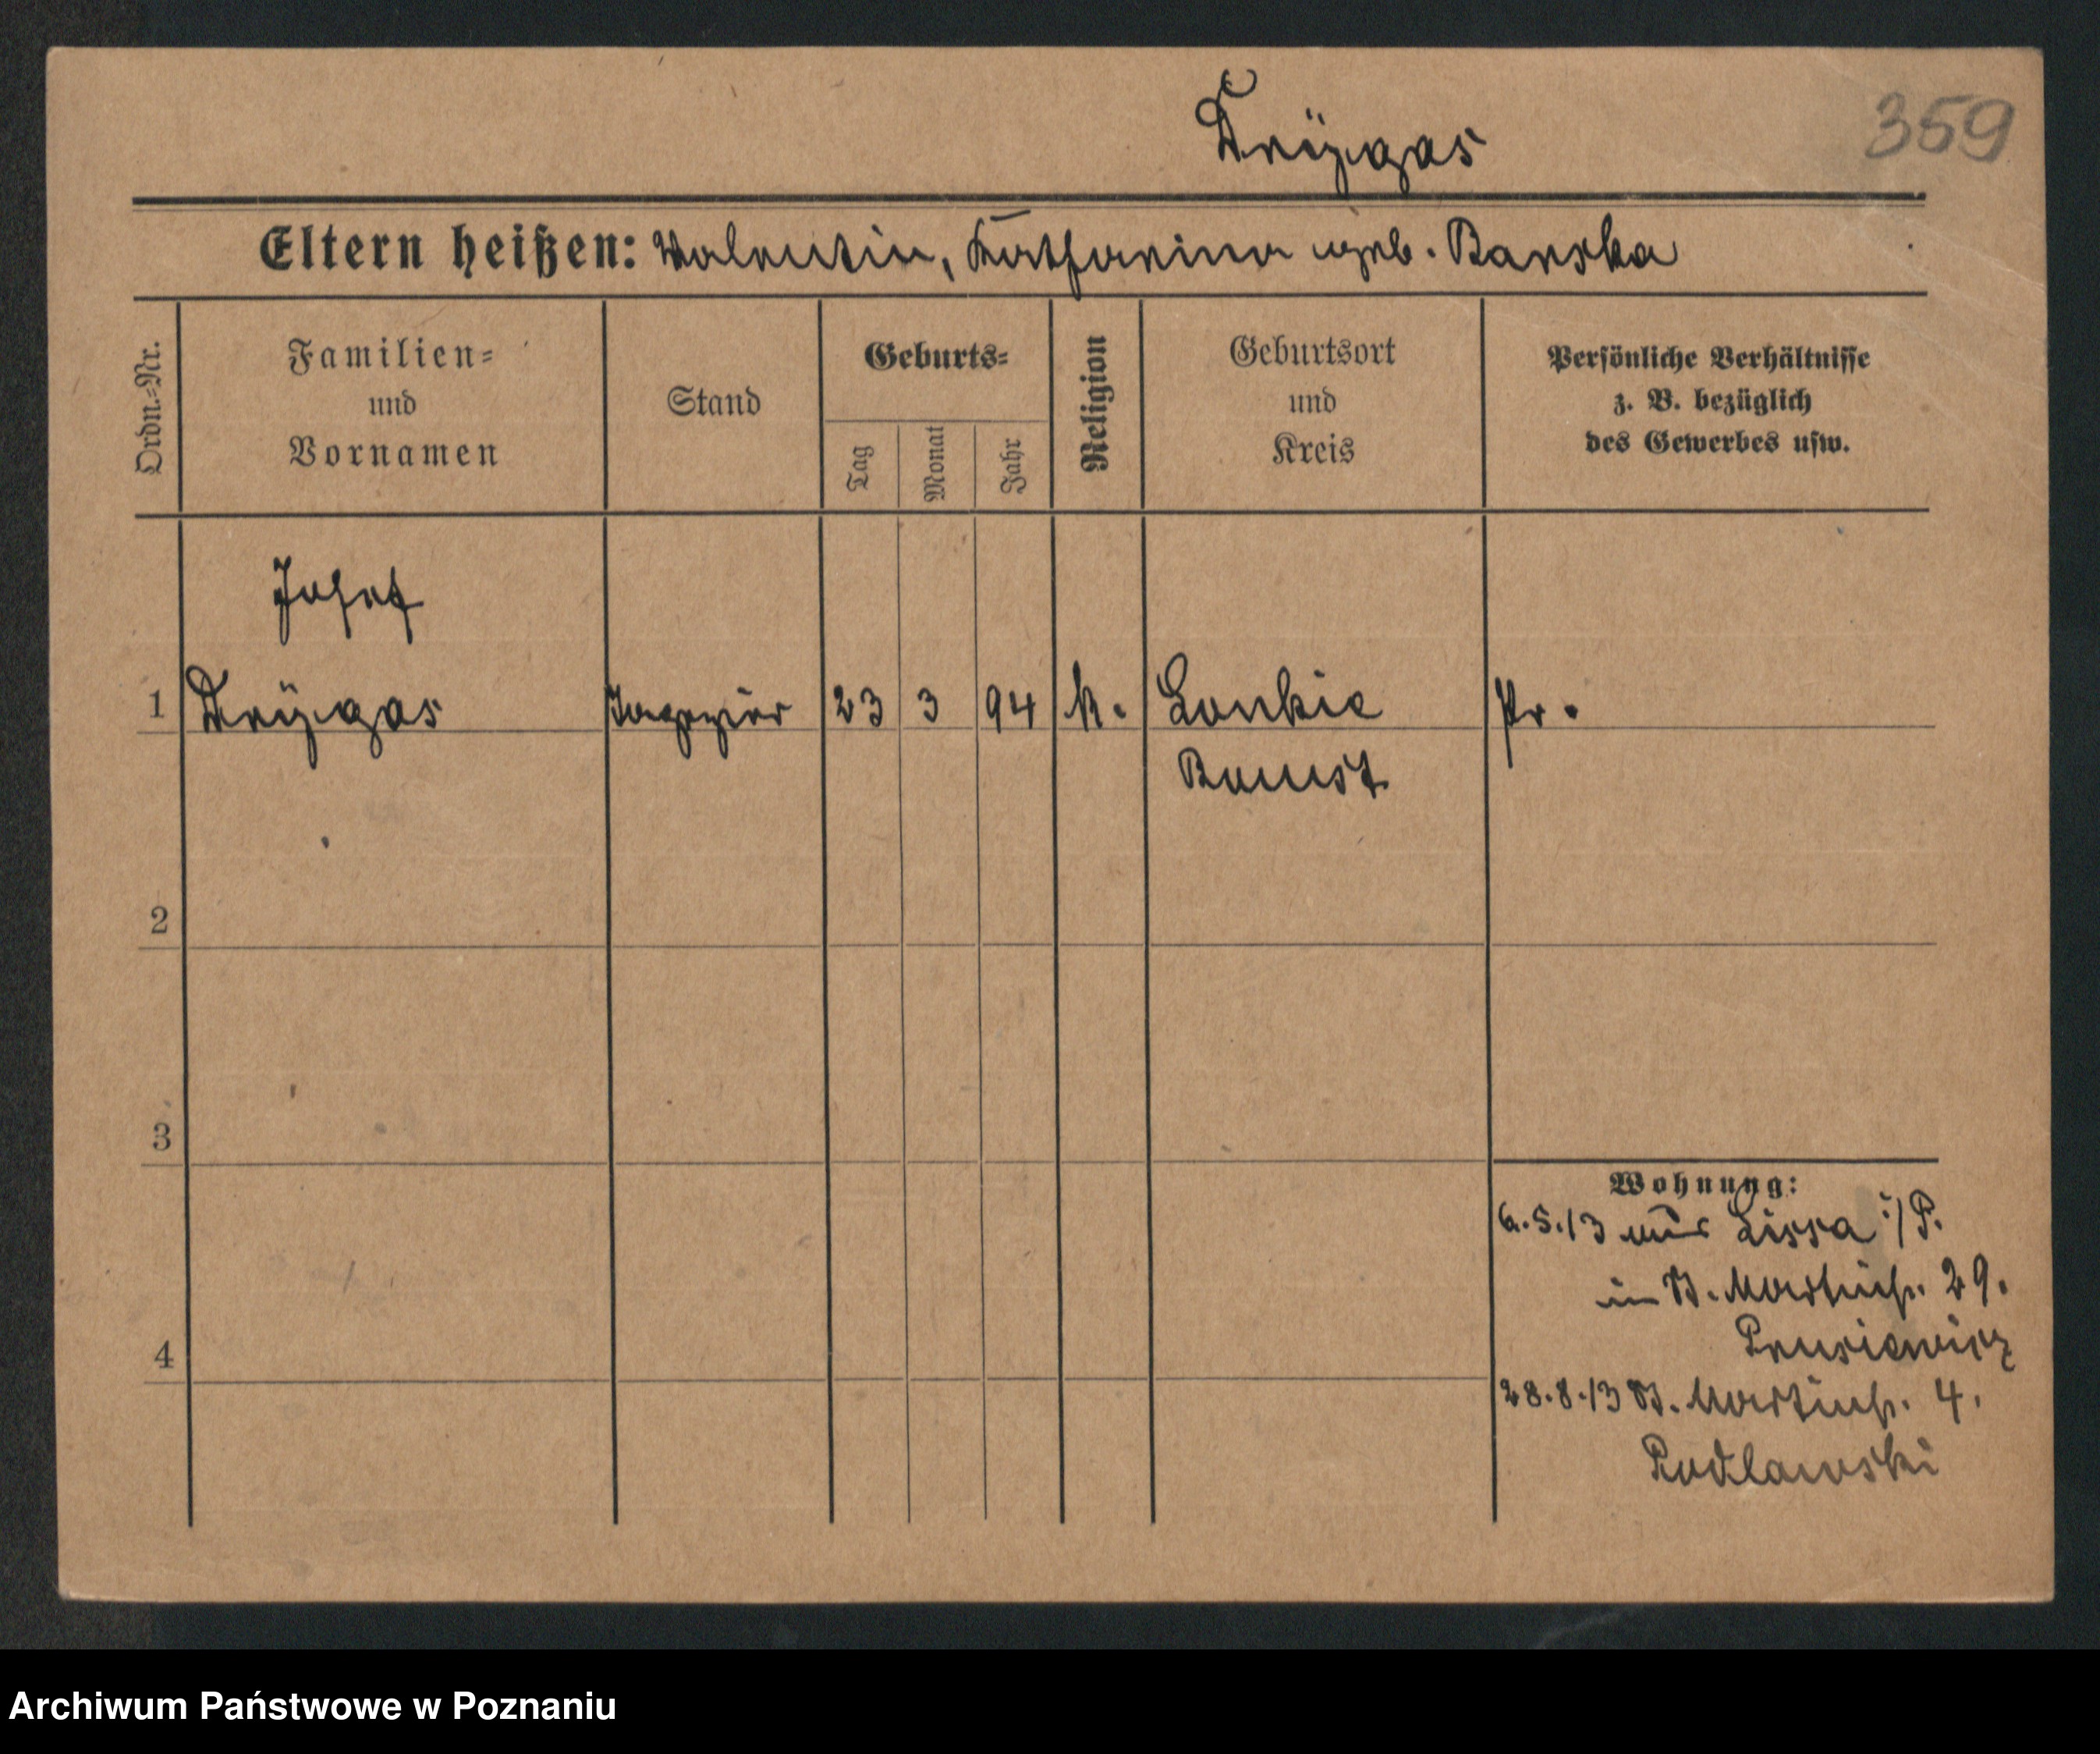 Dryzgas
359
Eltern heißen: Valentin, Katharina geb. Barska
Ordn.-Nr.
Familien-
und
Vornamen
Stand
Geburts-
Tag
Monat
Jahr
Religion
Geburtsort
und
Kreis
Persönliche Verhältnisse
z. B. bezüglich
des Gewerbes usw.
Josef
1 Dryzgas 23 3 94 k. Lonkie Pr.
Bomst
2
3
4
Wohnung:
6.5.13 aus Lissa i/P.
in St. Martinstr. 29.
Prusiewicz
28.8.13 St. Martinstr. 4.
Podlawski
Archiwum Państwowe w Poznaniu